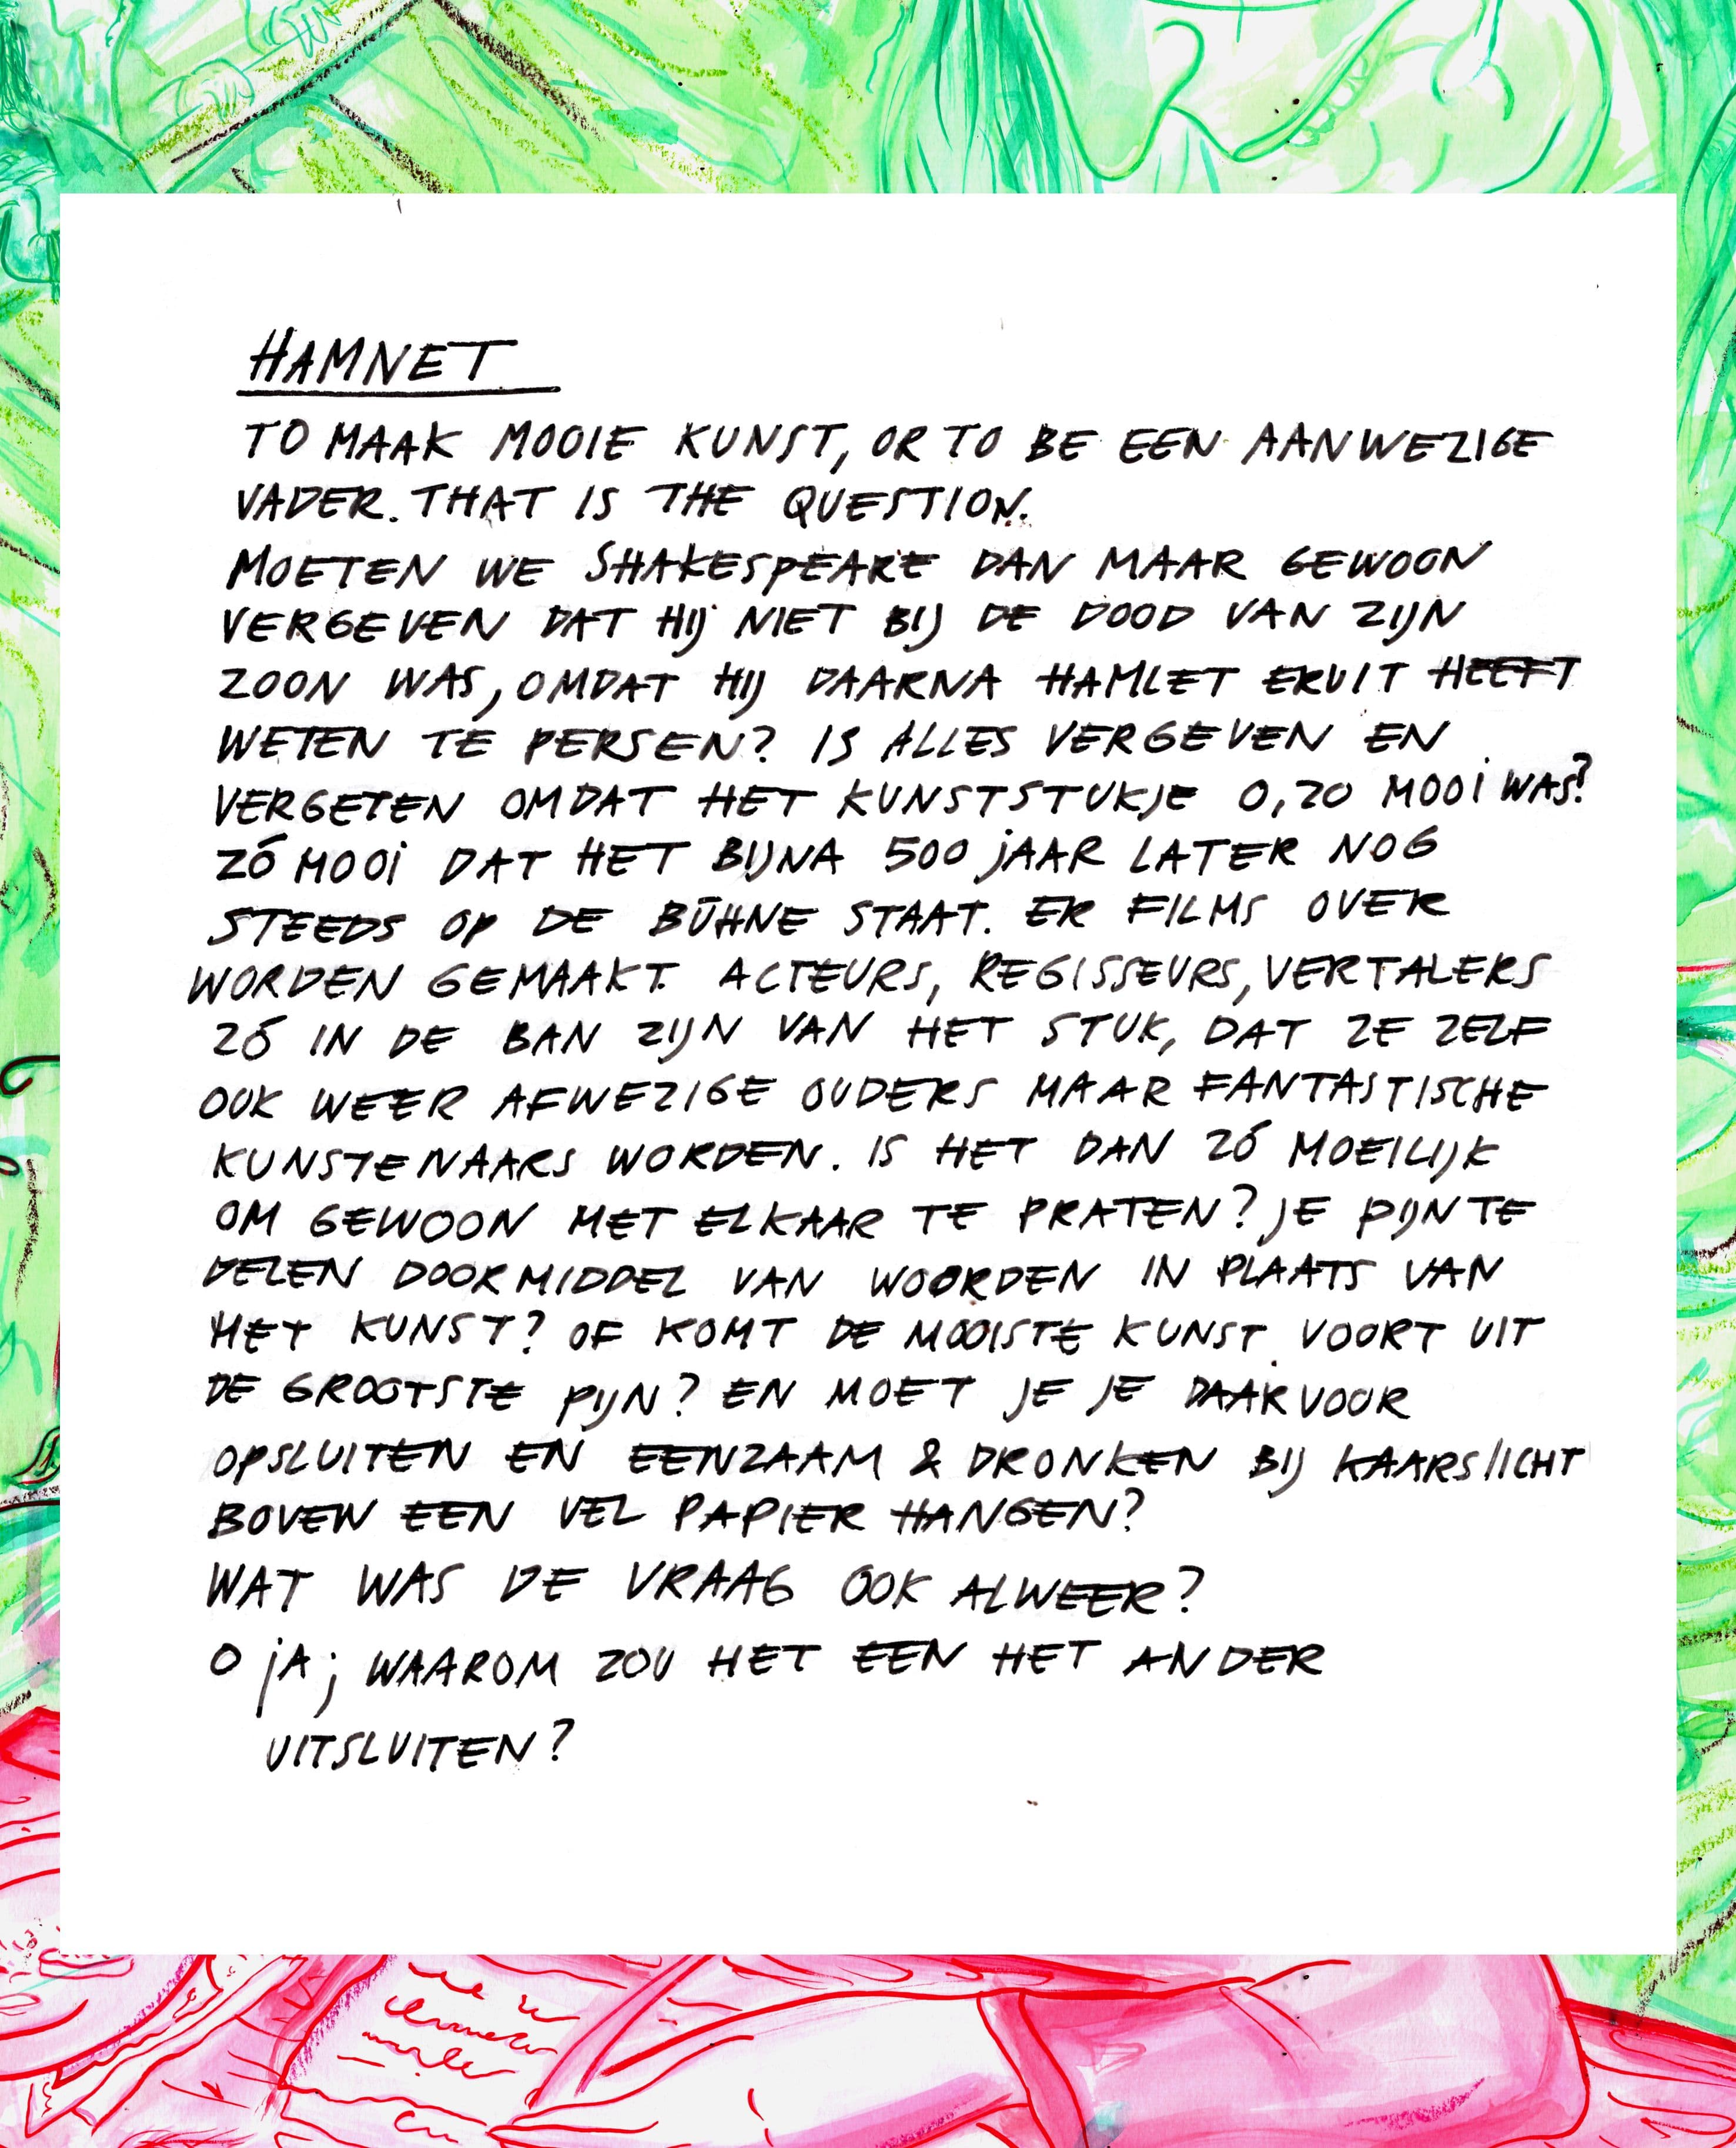 HAMNET
TO MAAK MOOIE KUNST, OR TO BE EEN AANWEZIGE
VADER. THAT IS THE QUESTION.
MOETEN WE SHAKESPEARE DAN MAAR GEWOON
VERGEVEN DAT HIJ NIET BIJ DE DOOD VAN ZIJN
ZOON WAS, OMDAT HIJ DAARNA HAMLET ERUIT HEEFT
WETEN TE PERSEN? IS ALLES VERGEVEN EN
VERGETEN OMDAT HET KUNSTSTUKJE O, ZO MOOI WAS?
ZÓ MOOI DAT HET BIJNA 500 JAAR LATER NOG
STEEDS OP DE BÜHNE STAAT. ER FILMS OVER
WORDEN GEMAAKT. ACTEURS, REGISSEURS, VERTALERS
ZÓ IN DE BAN ZIJN VAN HET STUK, DAT ZE ZELF
OOK WEER AFWEZIGE OUDERS MAAR FANTASTISCHE
KUNSTENAARS WORDEN. IS HET DAN ZÓ MOEILIJK
OM GEWOON MET ELKAAR TE PRATEN? JE PIJN TE
DELEN DOORMIDDEL VAN WOORDEN IN PLAATS VAN
MET KUNST? OF KOMT DE MOOISTE KUNST VOORT UIT
DE GROOTSTE PIJN? EN MOET JE JE DAARVOOR
OPSLUITEN EN EENZAAM & DRONKEN BIJ KAARSLICHT
BOVEN EEN VEL PAPIER HANGEN?
WAT WAS DE VRAAG OOK ALWEER?
O JA; WAAROM ZOU HET EEN HET ANDER
UITSLUITEN?